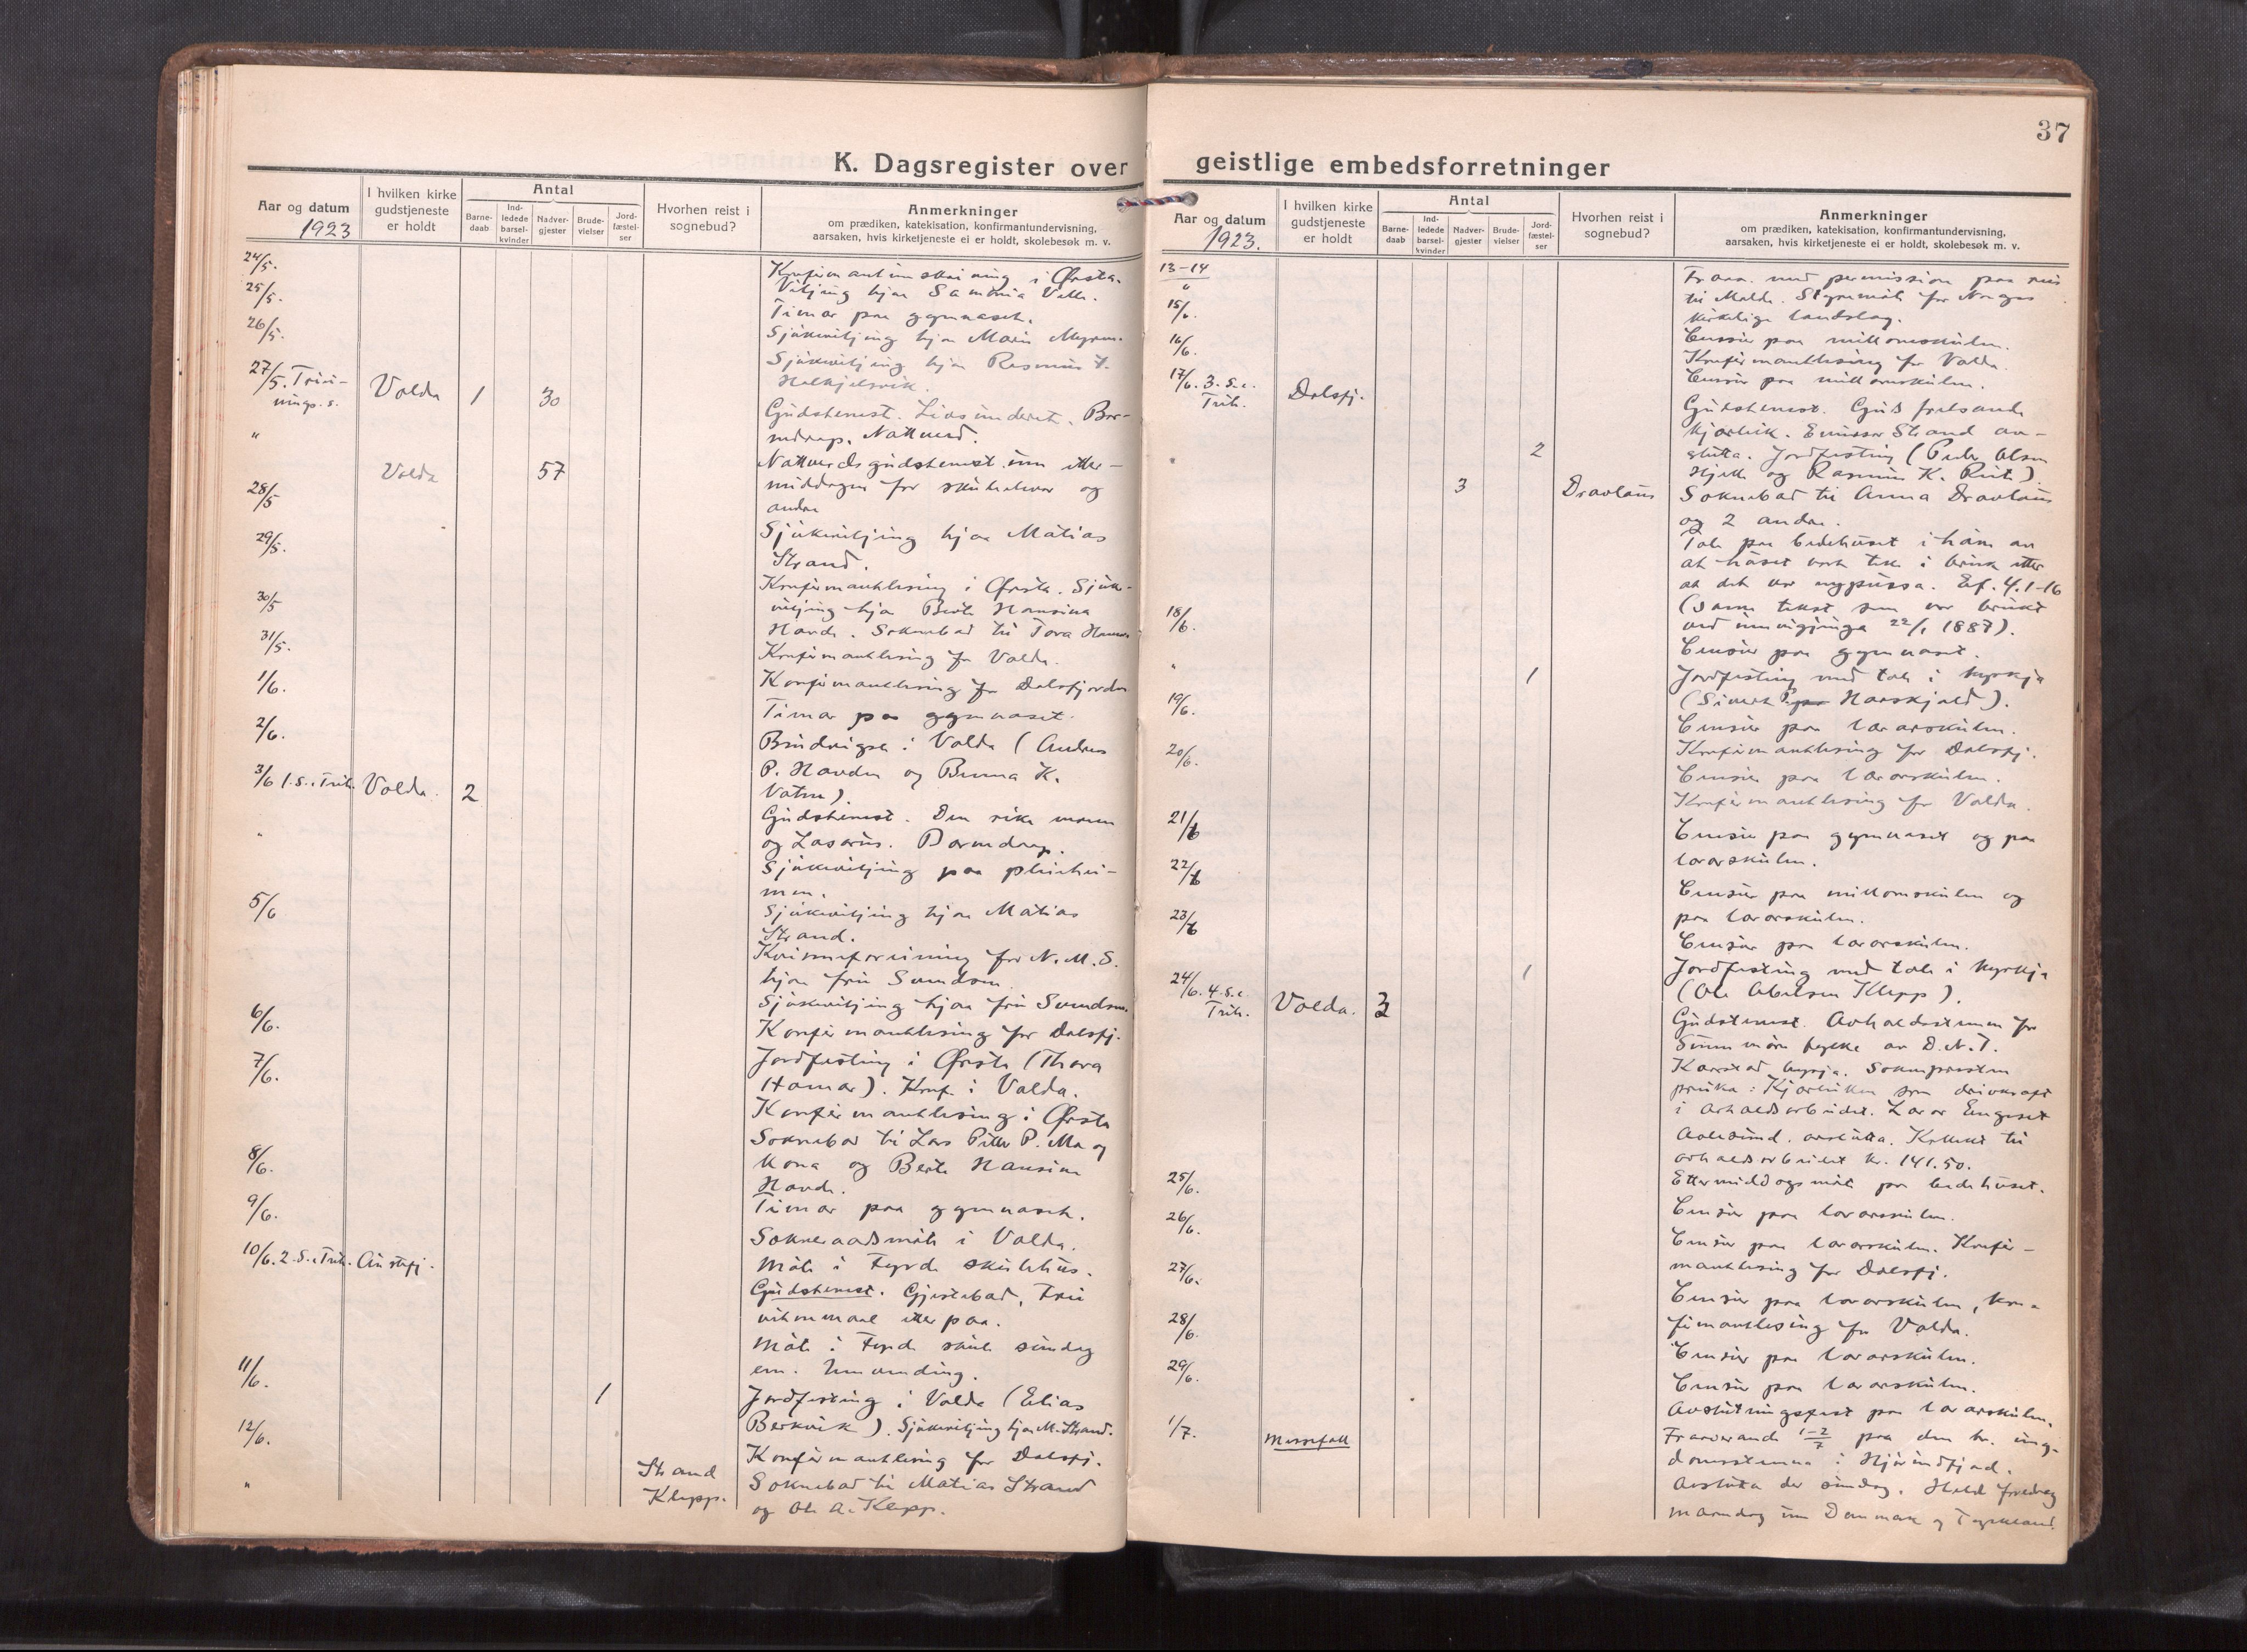 K. Dagsregister over
Aar og datum
1923
I hvilken kirke
gudstjeneste
er holdt
Antal
Barne-
daab
Ind-
ledede
barsel-
kvinder
Nadver-
gjester
Brude-
vielser
Jord-
fæstel-
ser
Hvorhen reist i
sognebud?
Anmerkninger
om prædiken, katekisation, konfirmantundervisning,
aarsaken, hvis kirketjeneste ei er holdt, skolebesøk m. v.
24/5. Konfirmantinnskrivning i Ørsta.
Vitjing hjaa
25/5. Timar paa gymnaset.
26/5. Sjukevitjing hjaa Marie
Sjukevitjing hjaa Rasmus
27/5. Trini- Volda 1 30
Gudstenest. Bar-
ndaap. Nattverd.
" Volda 57 Nattverdsgudstenest um etter-
middagen for skuleelevar og
andre
28/5 Sjukevitjing hjaa Matias
Strand.
29/5. Konfirmantlesing i Ørsta. Sjuke-
vitjing hjaa Berte Hansina
Hovde. Soknebod til Tora
30/5 Konfirmantlesing for Volda.
31/5. Konfirmantlesing for Dalsfjorden
1/6. Timar paa gymnaset.
2/6. Brudvigsel i Volda (Andreas
P. Hovden og K.
Vatne).
3/6 1. s. e. Trit. Volda. 2 Gudstenest. Den rike mann
og Lasarus. Barndaap.
" Sjukevitjing paa pleiehei-
men.
5/6 Sjukevitjing hjaa Matias
Strand.
Kvinneforeining for N. M. S.
hjaa fru
Sjukevitjing hjaa fru
6/6. Konfirmantlesing for Dalsfj.
7/6. Jordfesting i Ørsta (Thora
Hamar). Konf. i Volda.
Konfirmantlesing i Ørsta
Soknebod til Lars Petter P. Mo og
kona og Berte Hansine
Hovde.
8/6. Timar paa gymnaset.
9/6. Sokneraadsmøte i Volda.
Møte i Fyrde skulehus.
10/6. 2. s. e. Trit. Austefj. Gudstenest. Gjestebod,
etterpaa.
Møte i Fyrde skule sundag
em.
11/6. 1 Jordfesting i Volda (Elias
Berkvik). Sjukevitjing hjaa M. Strand.
12/6. Konfirmantlesing for Dalsfj.
" Strand Soknebod til Matias Strand
Klepp. og Ole A. Klepp.
37
geistlige embedsforretninger
Aar og datum
1923.
I hvilken kirke
gudstjeneste
er holdt
Antal
Barne-
daab
Ind-
ledede
barsel-
kvinder
Nadver-
gjester
Brude-
vielser
Jord-
fæstel-
ser
Hvorhen reist i
sognebud?
Anmerkninger
om prædiken, katekisation, konfirmantundervisning,
aarsaken, hvis kirketjeneste ei er holdt, skolebesøk m. v.
13-14 med permission paa reis
" til Molde. Styremøte for Noregs
kirkelige landslag.
15/6. Censur paa millomskulen.
16/6. Konfirmantlesing for Volda.
Censur paa millomskulen.
17/6. 3. s. e. Dalsfj. Gudstenest. Guds frelsande
Trit. kjærleik. Emissær Strand av-
2 slutta. Jordfesting (Peder Olsen
og Rasmus K.
" 3 Dravlaus Soknebod til Anna Dravlaus
og 2 andre.
Tale paa bedehuset i høve av
at huset vart teke i bruk etter
at det var nypussa. Ef. 4. 1-16
(same tekst som var brukt
ved innvigjinga 22/1 1887).
18/6. Censur paa gymnaset.
" 1 Jordfesting med tale i kyrkja
(Sivert P. Haaskjold).
19/6. Censur paa lærarskulen.
Konfirmantlesing for Dalsfj.
20/6. Censur paa lærarskulen.
Konfirmantlesing for Volda.
21/6 Censur paa gymnaset og paa
lærarskulen.
22/6 Censur paa millomskulen og
paa lærarskulen.
23/6 Censur paa lærarskulen.
1 Jordfesting med tale i kyrkja
(Ole Abelsen Klepp).
24/6. 4. s. e. Volda. 3 Gudstenest. Avhaldsstemna for
Trit. Sunnmøre fylke av D. N. T.
kyrkja. Soknepresten
preika: Kjærleiken som drivkraft
i avhaldsarbeidet. Lærar Engeset
Aalesund, avslutta. Kollekt til
avhaldsarbeidet kr. 141.50.
Ettermiddagsmøte paa bedehuset.
25/6. Censur paa lærarskulen.
26/6. Censur paa lærarskulen. Konfir-
mantlesing for Dalsfj.
27/6. Censur paa lærarskulen, kon-
firmantlesing for Volda.
28/6. Censur paa lærarskulen.
29/6. Censur paa lærarskulen.
Avslutningsfest paa lærarskulen.
1/7. Messefall Fraaverande 1-2/7 paa den kr. ung-
domsstemna i Hjørundfjord.
Avslutta der sundag. Heldt foredrag
maandag um Danmark og Tyskland.